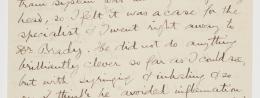 train system was in my
head, so I felt it was a case for the
specialist & I went right away to
Dr Brady. He did not do anything
brilliantly clever so far as I could see,
but with syringing & inhaling & so
I think he avoided inflammation